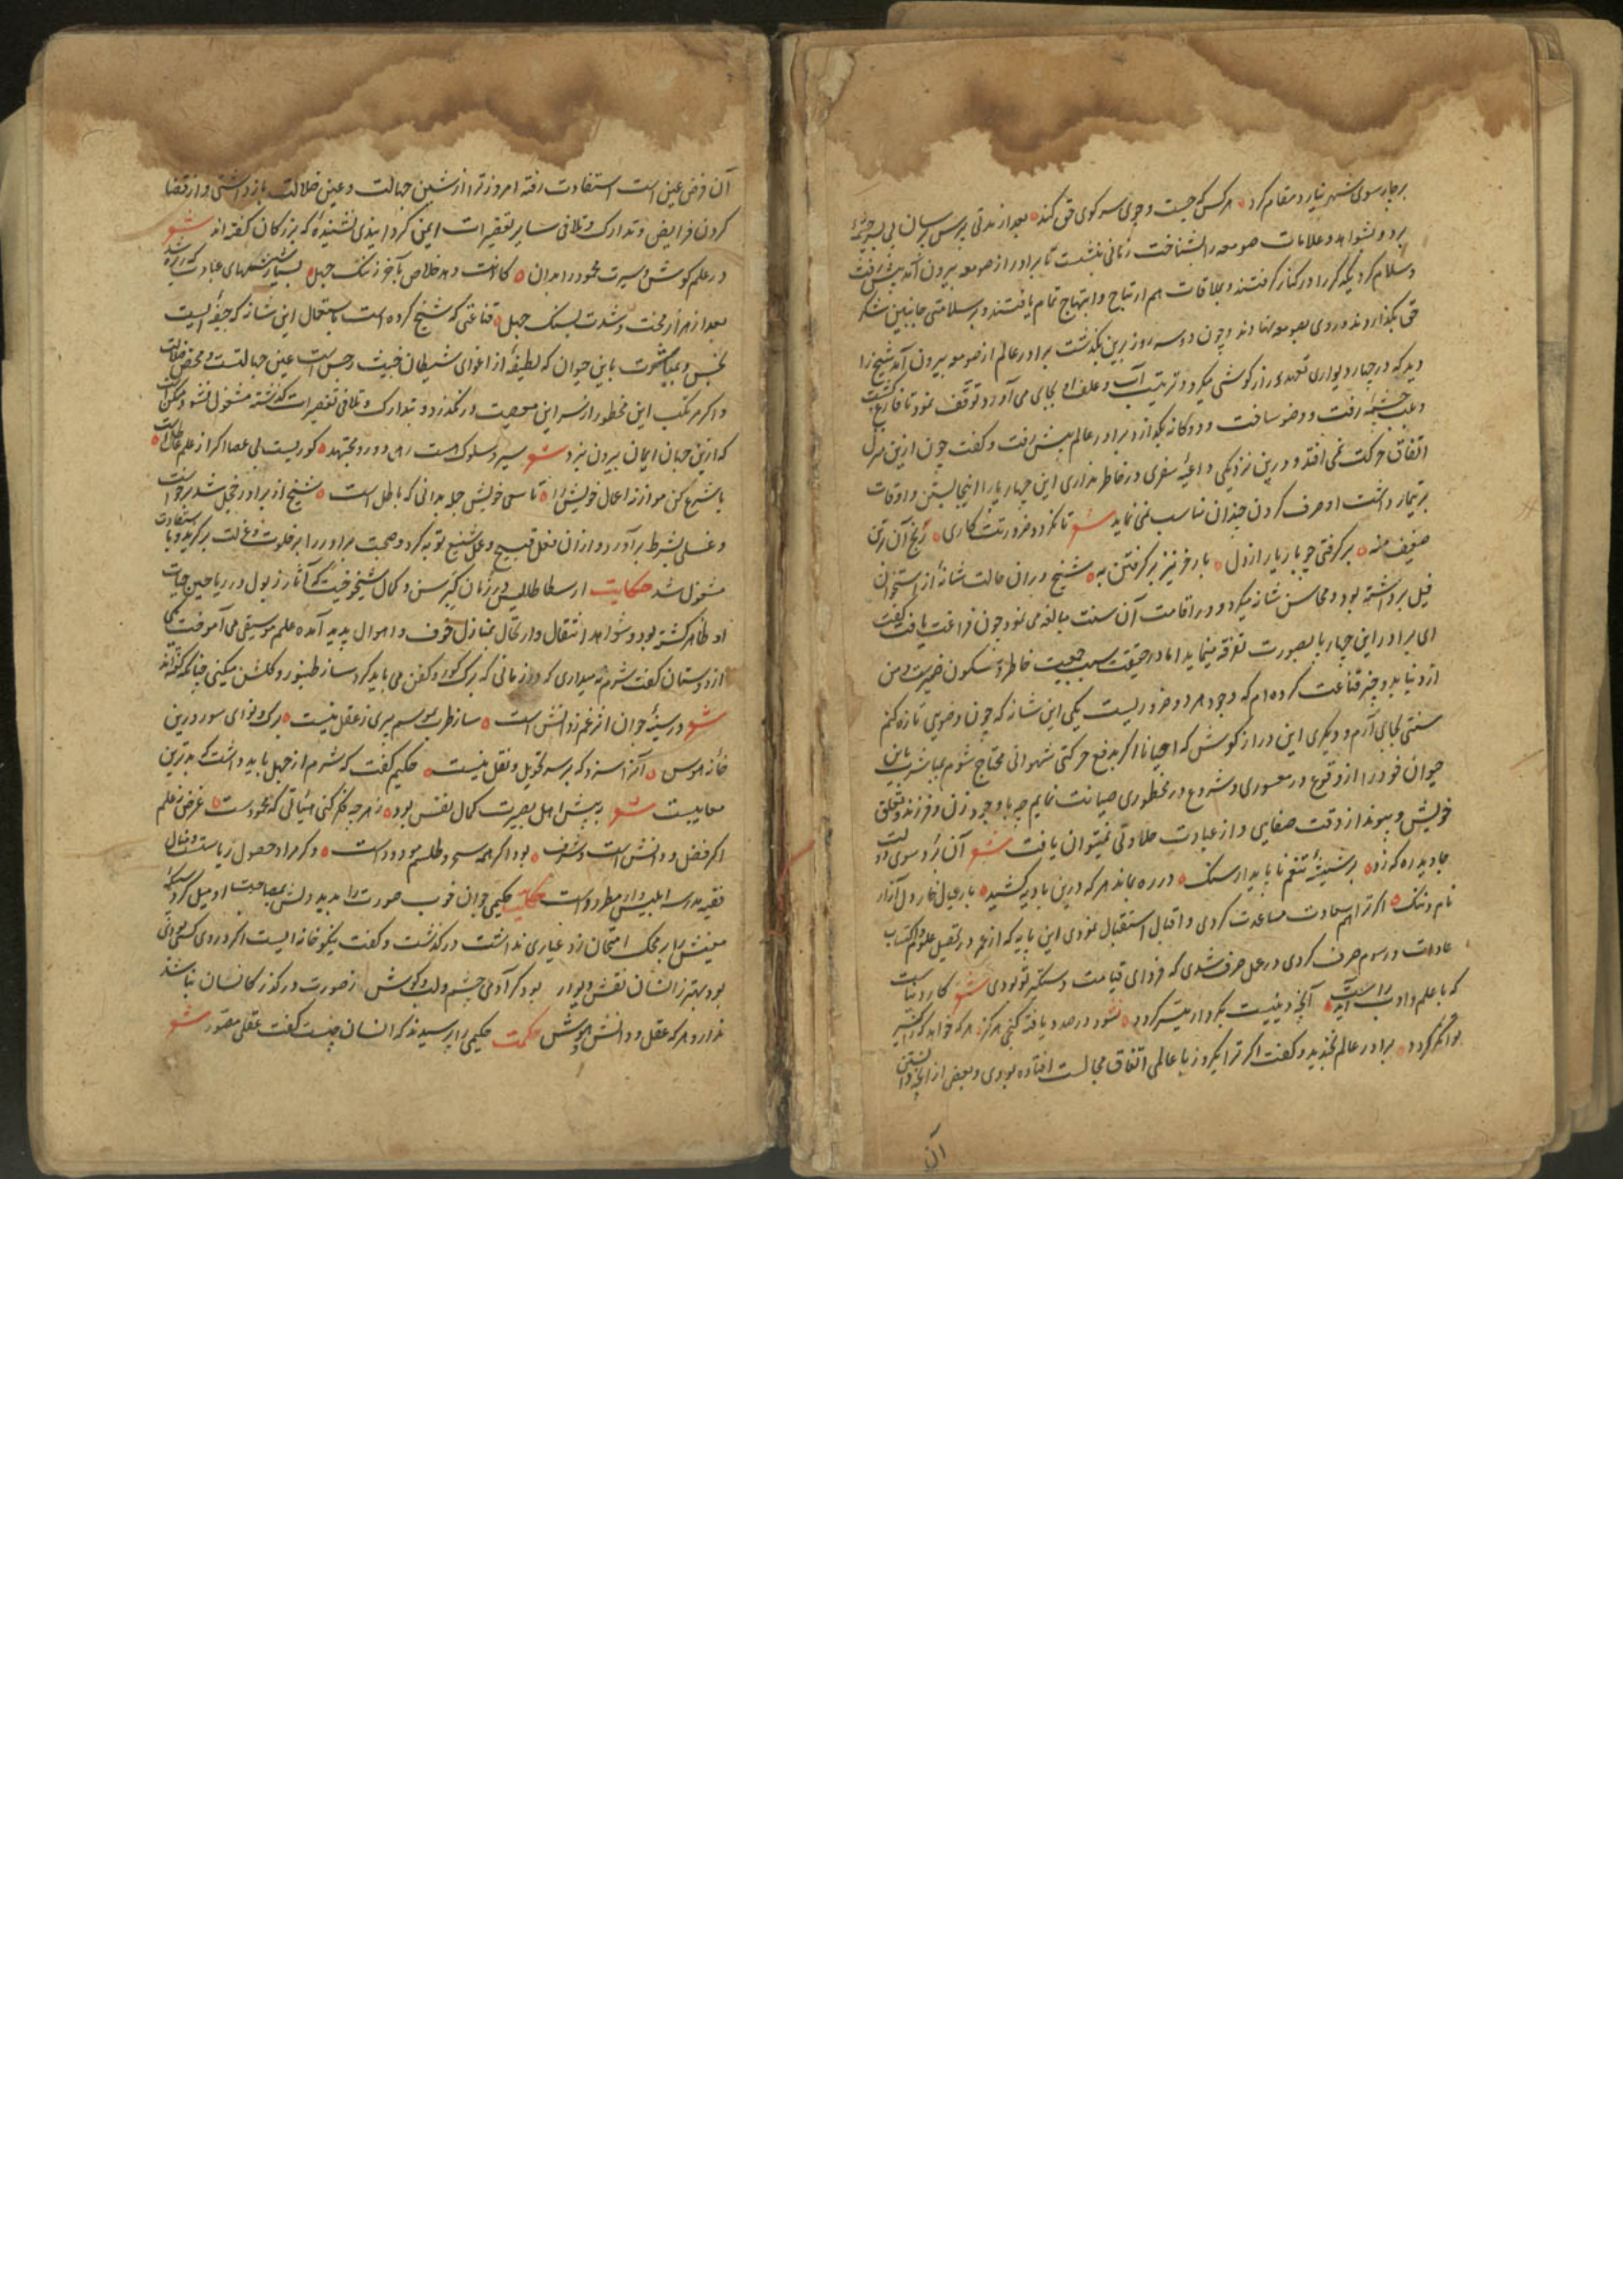 بر چارسوی شهر نیارد مقام کرد هر کس که جست و جوی سر کوی حق کند بعد از مدتی پرس پرسان پی بسر چشمه
برد و بشواهد و علامات صومعه را بشناخت زمانی بنشست تا برادر از صومعه بیرون آمد پیش رفت
و سلام کرد یکدیگر را در کنار گرفتند و بملاقات هم ارتیاح و ابتهاج تمام یافتند و بر سلامتی جانبین شکر
حق بگذاردند و روی بصومعه نهادند و چون دو سه روز برین بگذشت برادر عالم از صومعه بیرون آمد شیخ را
دید که در چهار دیواری تعهد دراز گوشی میکرد و ترتیب آب و علف او بجای می آورد توقف نمود تا فارغ گشت
و بلب چشمه رفت و وضو ساخت و دوگانه بگذارد برادر عالم پیش رفت و گفت چون ازین منزل
اتفاق حرکت نمی افتد و درین نزدیکی داعیه سفری در خاطر نداری این چهارپا را اینجا بستن و اوقات
بر تیمار داشت او صرف کردن چندان مناسب نمی نماید شعر تا نگردد ضرورتت کاری رنج آن بر تن
ضعیف منه بر گرفتی چو بار یار از دل بار خر نیز بر گرفتن به شیخ در آن حالت شانه از استخوان
فیل برداشته بود و محاسن شانه میکرد و در اقامت آن سنت مبالغه می نمود چون فراغت یافت گفت
ای برادر این چهارپا بصورت تفرقه مینماید اما در حقیقت سبب جمعیت خاطر و سکون ضمیرست و من
از دنیا بدو چیز قناعت کرده ام که وجود هر دو ضروریست یکی این شانه که چون وضویی تازه کنم
سنتی بجای آرم و دیگری این دراز گوش که احیانا اگر بدفع حرکتی شهوانی محتاج شوم بمباشرت این
حیوان خود را از وقوع در معسوری و شروع در محظوری صیانت نمایم چه با وجود زن و فرزند و تعلق
خویش و پیوند از وقت صفایی و از عبادت حلاوتی نمیتوان یافت شعر آن برد سوی دولت
جاوید ره که زد بر شیشه تنعم ناپایدار سنگ در ره بماند هر که درین بادیه کشید بار عیال خار دل آزار
نام و ننگ اگر ترا هم سعادت مساعدت کردی و اقبال استقبال نمودی این پایه که از عمر در تحصیل علوم و اکتساب
عادات و رسوم صرف کردی در عمل صرف شدی که فردای قیامت دستگیر تو بودی شعر کار دنیاست
که با علم و ادب راست آید آنچه دینیست بکردار میسر گردد نشود در صدد یافه گنجی هرگز هر که خواهد که
توانگر گردد برادر عالم بخندید و گفت اگر ترا یکروز با عالمی اتفاق مجالست افتاده بودی و بعضی از آنچه دانستن
آن
آن فرض عین است استفادت رفته امروز ترا از شین جهالت و عین ضلالت باز داشتی و از قضا
کردن فرایض و تدارک و تلافی سایر تقصیرات ایمن گردانیدی نشنیده که بزرگان گفته اند شعر
در علم کوش و سیرت محمود را بدان کانت دهد خلاص بآخر ز ننگ جهل بسیار شیشهای عبادت که ریزه شد
بعد از هزار محنت و شدت بسنگ جهل قناعتی که شیخ کرده است باستعمال این شانه که جیفه ایست
نجس و بمباشرت باین حیوان که لطیفه از اغوای شیطان خبیث و حس است عین جهالتست و محض ضلالت
و اگر مرتکب این محظور از سر این معصیت در نگذرد و بتدارک و تلافی تقصیرات گذشته مشغول نشود ممکن است
که ازین جهان ایمان بیرون نبرد شعر سیر و سلوک هست رهی دور و مجتهد کوریست بی عصا اگر از علم عاطلست
با شرع کن موازنه اعمال خویش را تا سعی خویش جمله بدانی که باطل است شیخ از برادر خجل شد برخاست
و غسلی بشرط برآورد و از آن فعل قبیح و عمل شنیع توبه کرد و صحبت برادر را بر خلوت و عزلت برگزید و با استفادت
مشغول شد حکایت ارسطاطالیس در زمان کبر سن و کمال شیخوخیت که آثار ذبول در ریاحین حیات
او ظاهر گشته بود و شواهد انتقال و ارتحال بمنازل خوف و اهوال پدید آمده علم موسیقی می آموخت یکی
از دوستان گفت شرم نمیداری که در زمانی که برگ گور و کفن می باید کرد ساز طنبور و گلشن میکنی چنانکه گفته اند
شعر در سینه جوان اثر غم ز دانش است ساز طرب بموسم پیری ز عقل نیست برگ و نوای سور درین
خانه هوس آنرا سزد که بر سر تحویل و نقل نیست حکیم گفت که شرم از جهل باید داشت که بدترین
معایبست شعر بپیش اهل بصیرت کمال نفس بود ز هر چه فکر کنی هیأتی که محمودست غرض ز علم
اگر فضل و دانش است و شرف بود اگر همه سحر و طلسم مودودست و گر مراد حصول ریاست و مال
فقیه مدرسه ابلیس وار مطرودست حکایت حکیمی جوان خوب صورت را بدید دلش بمصاحبت او میل کرد سکه
معنیش را بر محک امتحان زد عیاری نداشت در گذشت و گفت نیکو خانه ایست اگر در وی کسی بودی
بود بهتر ز انسان نقش دیوار بود گر آدمی چشم و لب و گوش ز صورت در گذر کانسان نباشد
ندارد هر که عقل و دانش و هوش حکمت حکیمی را پرسیدند که انسان چیست گفت عقلی مصور شعر